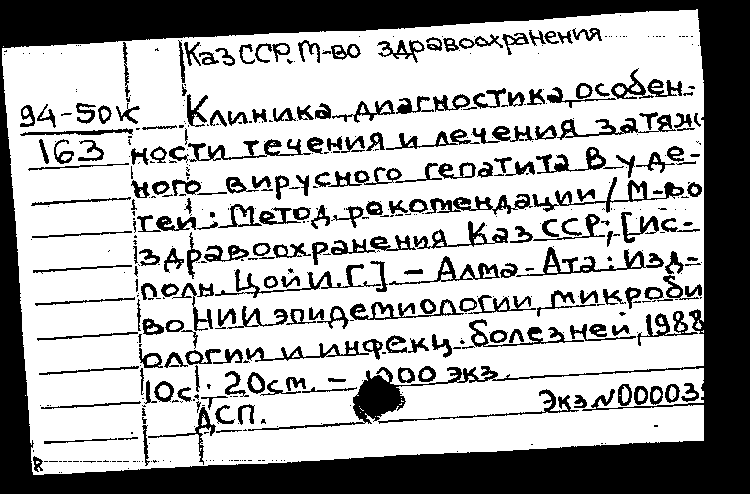 КазССР. М-во здравоохранения
94-50к Клиника, диагностика, особен-
163 ности течения и лечения затяж
ного вирусного гепатита В у де-
тей: Метод. рекомендации / М-во
здравоохранения Каз ССР; [Ис-
полн. Цой И.Г.]. - Алма-Ата: Изд-
во НИИ эпидемиологии, микроби
ологии и инфекц. болезней, 1988
10с.; 20см. - 1000 экз.
ДСП. Экз №00003
8